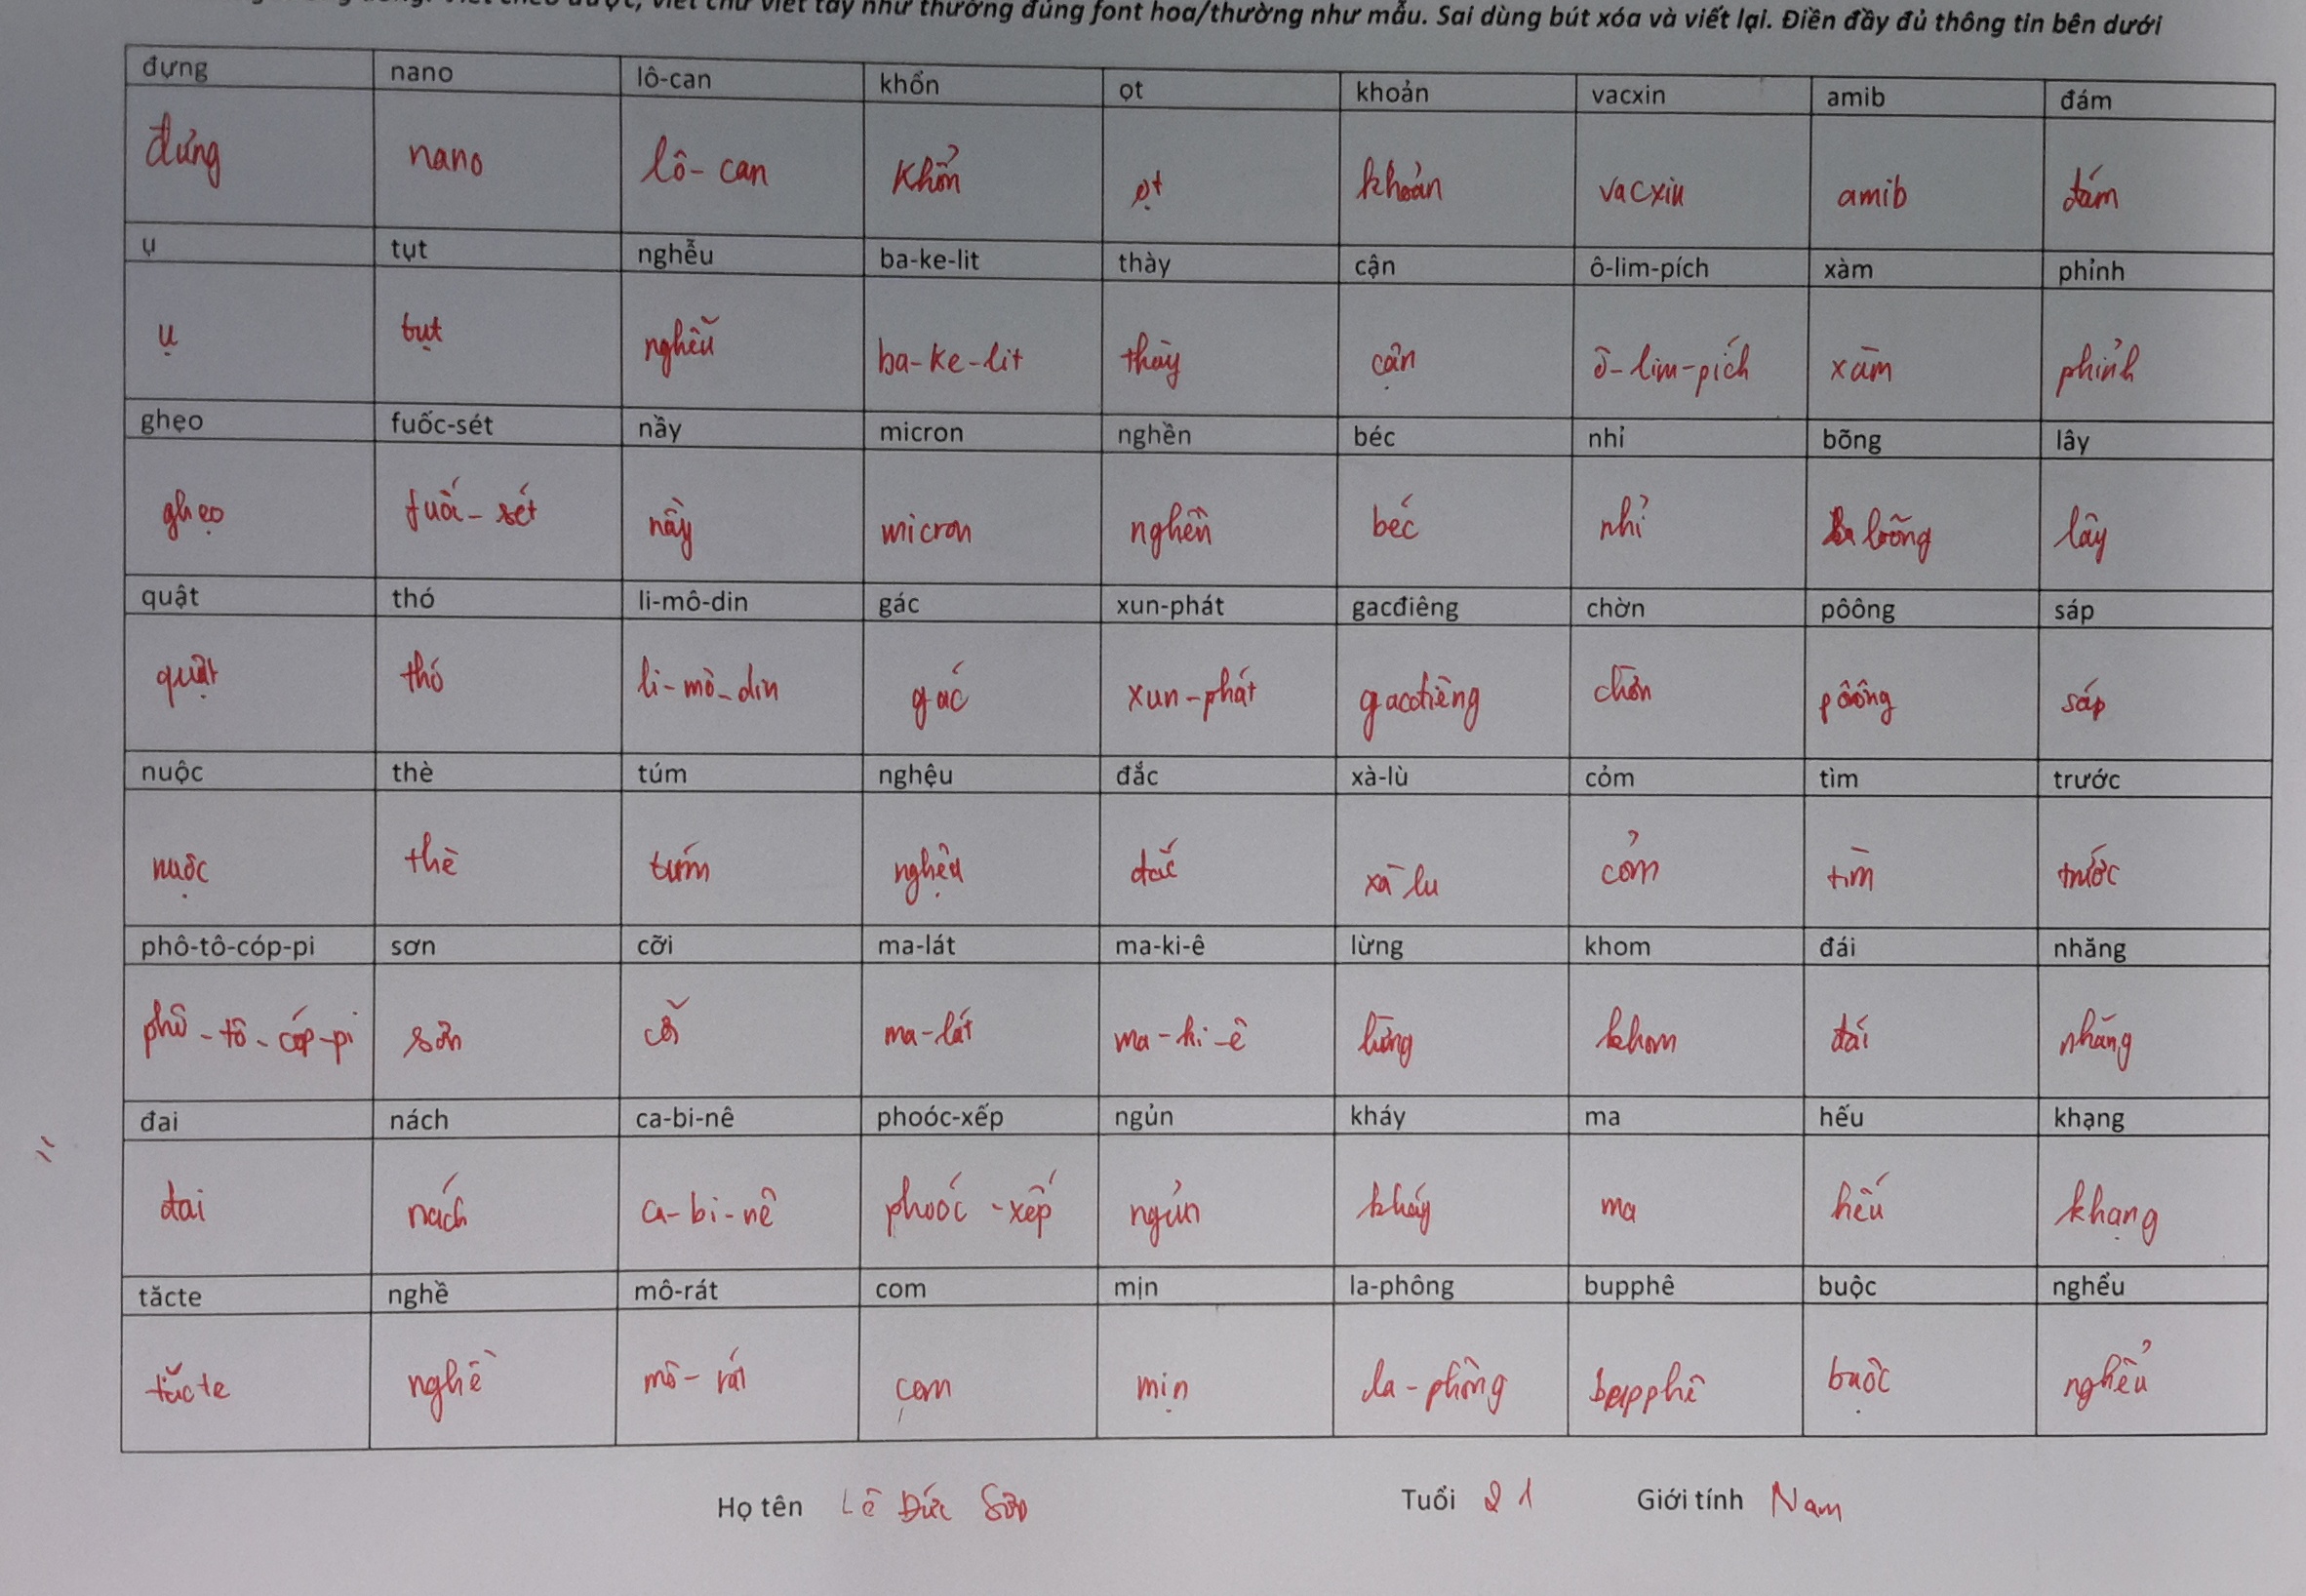 viết chữ viết tay như thường đúng font hoa/thường như mẫu. Sai dùng bút xóa và viết lại. Điền đầy đủ thông tin bên dưới
đựng nano lô-can khổn ọt khoản vacxin amib đám
đứng nano lô-can khổn ọt khoản vacxin amib đám
ụ tụt nghễu ba-ke-lit thày cận ô-lim-pích xàm phỉnh
ụ tụt nghễu ba-ke-lit thày cận ô-lim-pích xàm phỉnh
ghẹo fuốc-sét nầy micron nghền béc nhỉ bõng lây
ghẹo fuốc-sét nầy micron nghền béc nhỉ bõng lây
quật thó li-mô-din gác xun-phát gacđiêng chờn pôông sáp
quật thó li-mô-din gác xun-phát gacđiêng chờn pôông sáp
nuộc thè túm nghệu đắc xà-lù cỏm tìm trước
nuộc thè túm nghệu đắc xà lu cỏm tìm trước
phô-tô-cóp-pi sơn cỡi ma-lát ma-ki-ê lừng khom đái nhăng
phô-tô-cóp-pi sơn cỡi ma-lát ma-ki-ê lừng khom đái nhăng
đai nách ca-bi-nê phoóc-xếp ngủn kháy ma hếu khạng
đai nách ca-bi-nê phoóc-xếp ngủn kháy ma hếu khạng
tăcte nghề mô-rát com mịn la-phông bupphê buộc nghểu
tăcte nghề mô-rát com mịn la-phông bupphê buộc nghểu
Họ tên Lê Đức Sơn Tuổi 21 Giới tính Nam